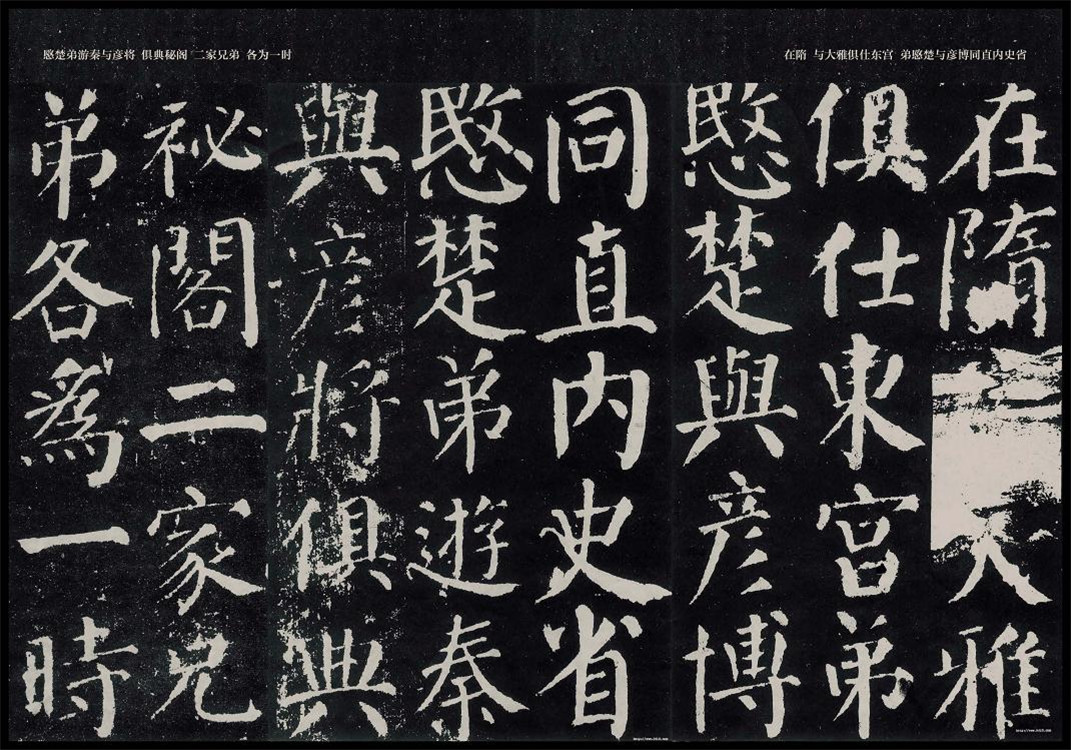 在隋 与大雅俱仕东宫 弟愍楚与彦博同直内史省
愍楚弟游秦与彦将 俱典秘阁 二家兄弟 各为一时
在隋大雅
俱仕東宮弟
愍楚與彦博
同直内史省
愍楚弟遊秦
與彦將俱典
祕閣二家兄
弟各爲一時